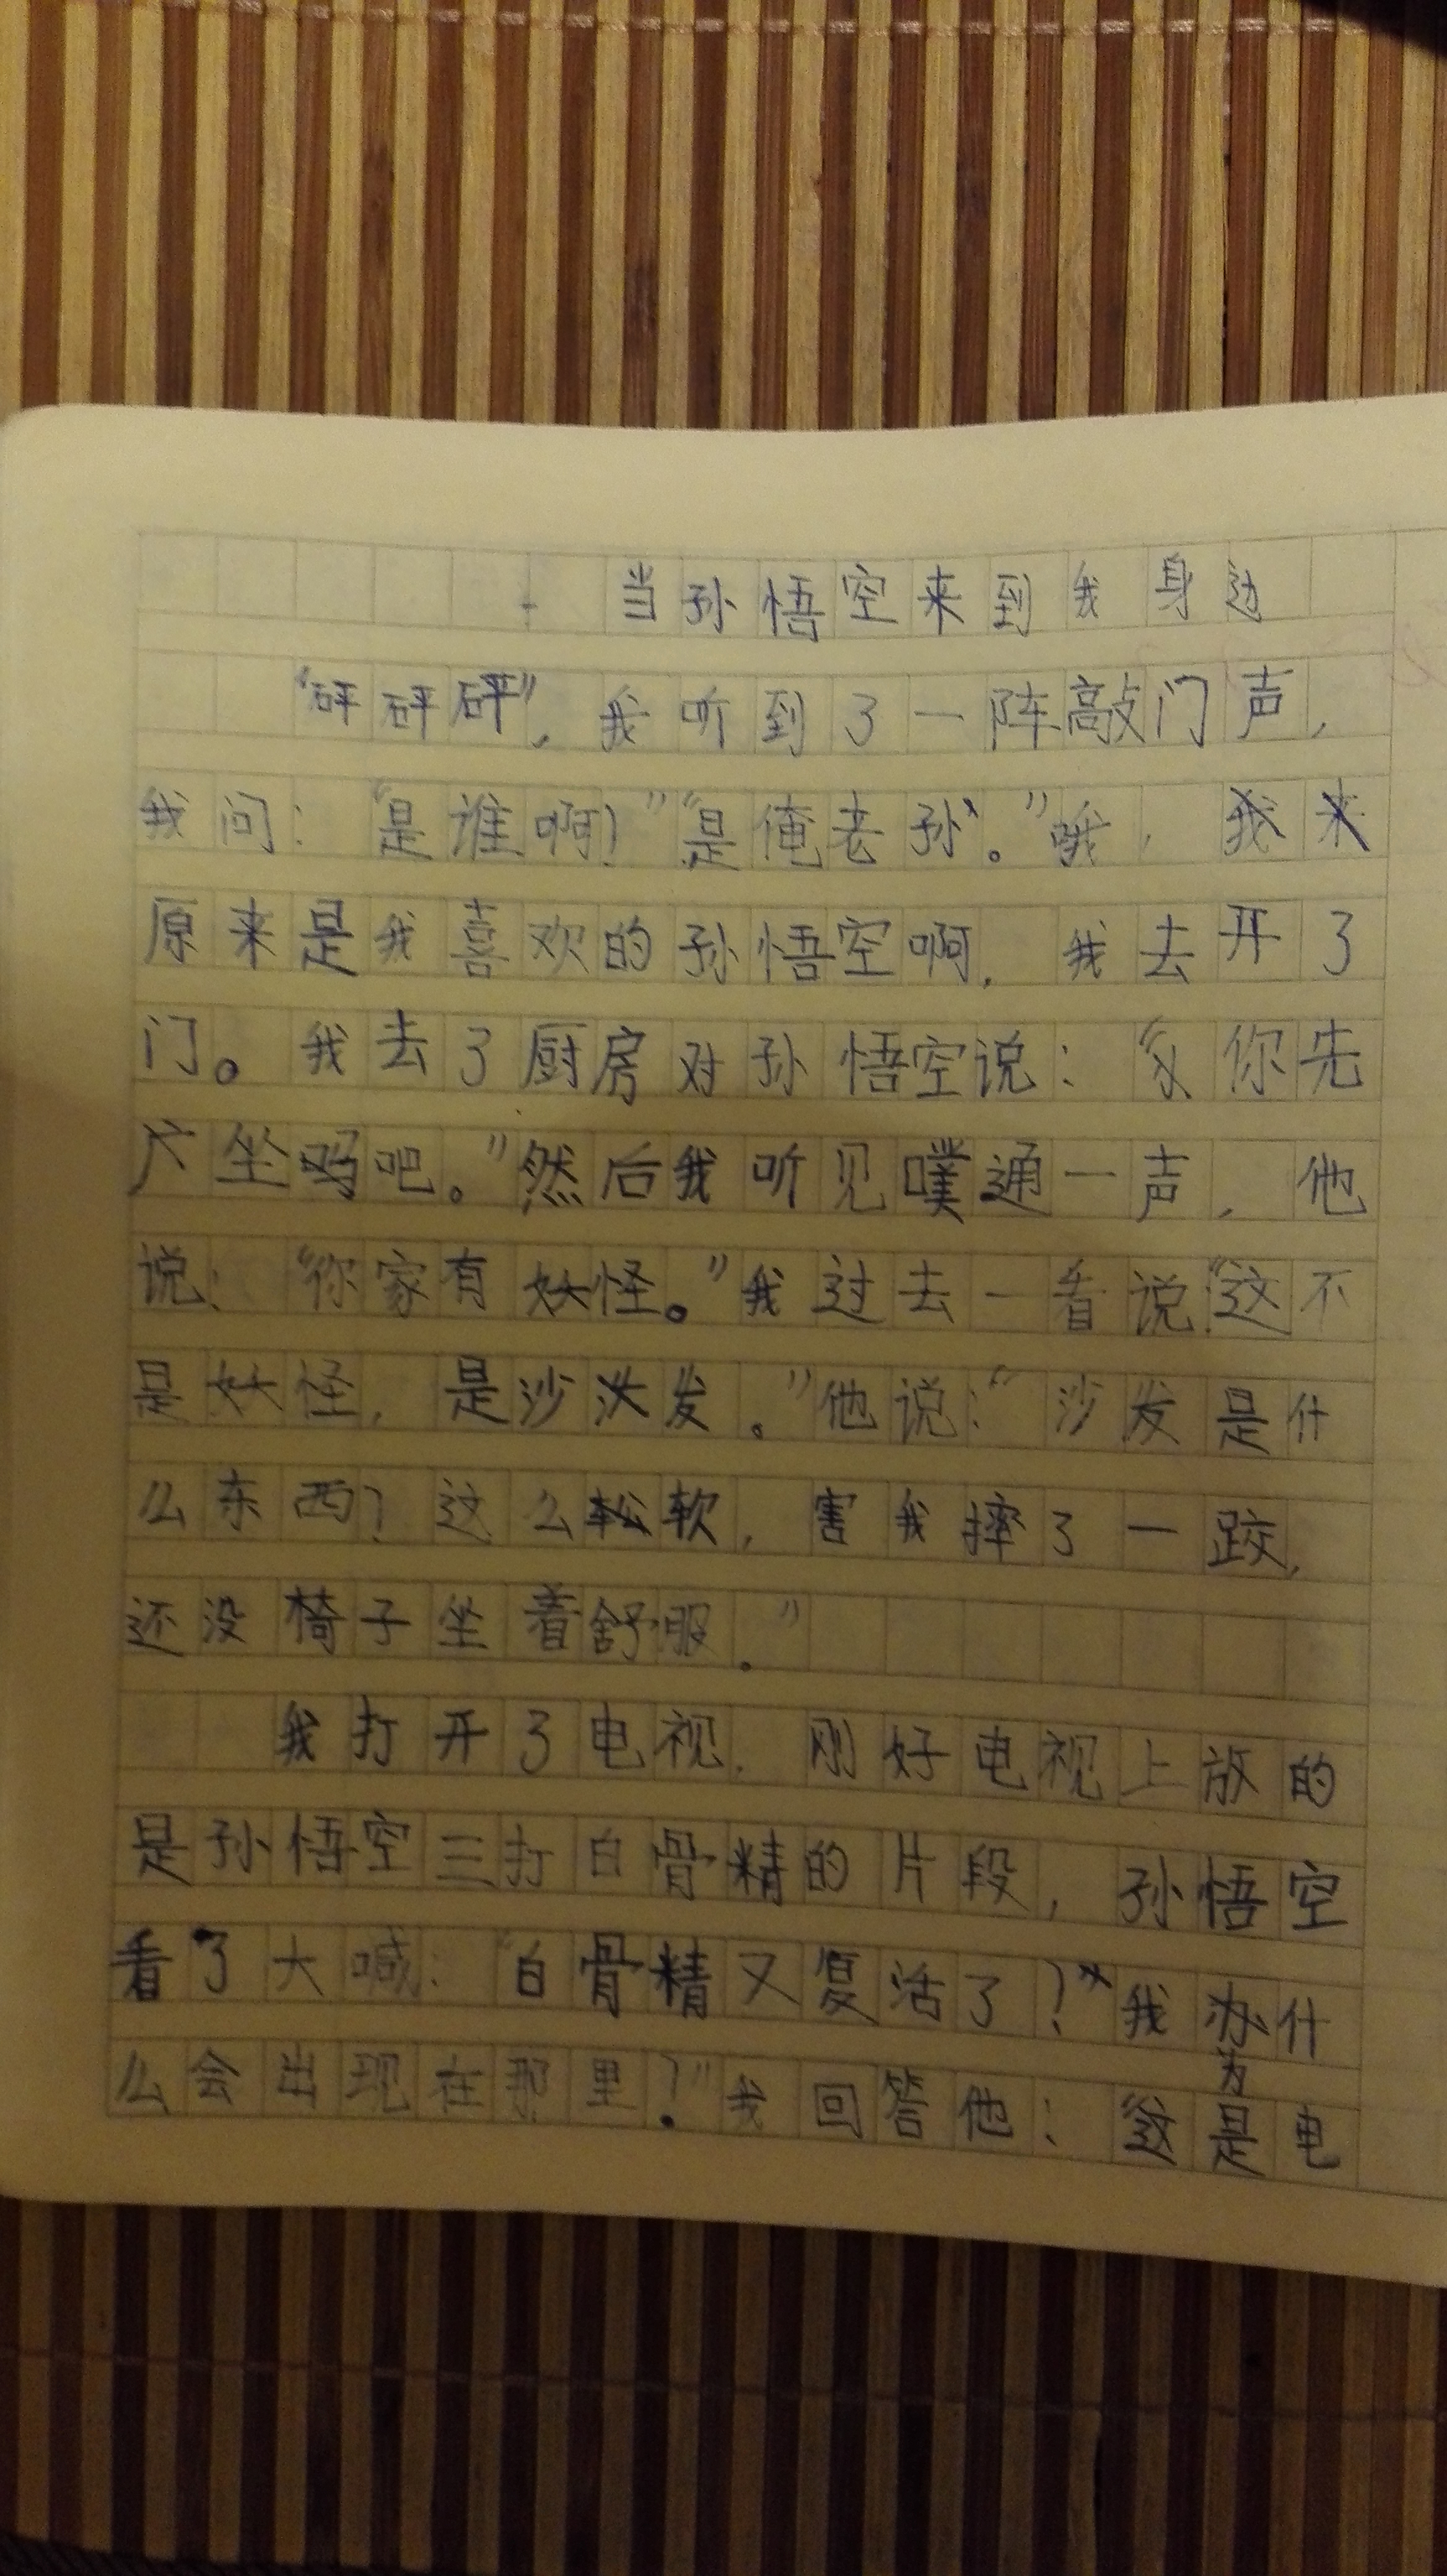 当孙悟空来到我身边
“砰砰砰”,我听到了一阵敲门声,
我问:“是谁啊?”“是俺老孙。”哦,
原来是我喜欢的孙悟空啊,我去开了
门。我去了厨房对孙悟空说:“你先
坐吧。”然后我听见噗通一声,他
说:“你家有妖怪。”我过去一看说:“这不
是妖怪,是沙发。”他说:“沙发是什
么东西?这么松软,害我摔了一跤,
还没椅子坐着舒服。”
我打开了电视,刚好电视上放的
是孙悟空三打白骨精的片段,孙悟空
看了大喊:“白骨精又复活了?我为什
么会出现在那里?”我回答他:“这是电